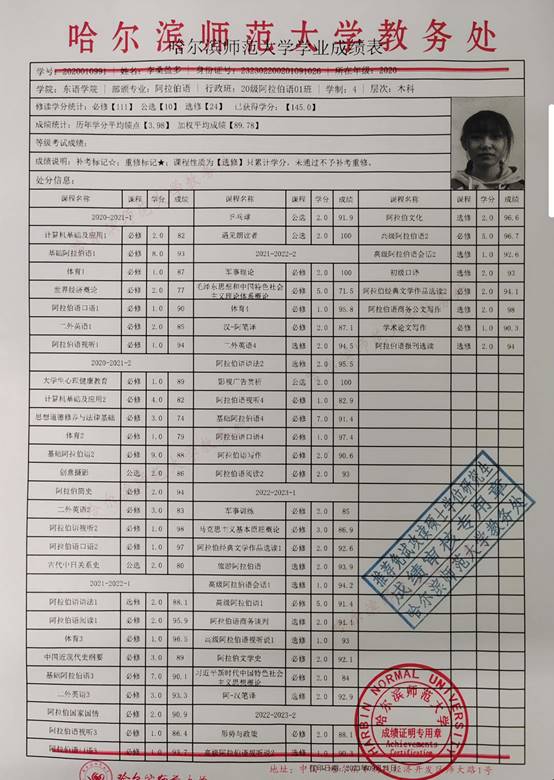 哈尔滨师范大学教务处
哈尔滨师范大学学业成绩表
学号: 2020010991 | 姓名: 李 | 身份证号: 232302200201091026 | 所在年级: 2020
学院: 东语学院 | 部颁专业: 阿拉伯语 | 行政班: 20级阿拉伯语01班 | 学制: 4 | 层次: 本科
修读学分统计: 必修【111】 公选【10】 选修【24】 已获得学分: 【145.0】
成绩统计: 历年学分平均绩点【3.98】 加权平均成绩【89.78】
等级考试成绩:
成绩说明: 补考标记○; 重修标记★; 课程性质为【选修】只累计学分, 未通过不予补考重修。
处分信息:
课程名称 课程 学分 成绩 课程名称 课程 学分 成绩 课程名称 课程 学分 成绩
2020-2021-1 乒乓球 公选 2.0 91.9 阿拉伯文化 选修 2.0 96.6
计算机基础及应用1 必修 2.0 82 遇见朗读者 公选 2.0 100 高级阿拉伯语2 必修 5.0 96.7
基础阿拉伯语1 必修 8.0 93 2021-2022-2 高级阿拉伯语会话2 选修 1.0 92.6
体育1 必修 1.0 87 军事理论 必修 2.0 100 初级口译 必修 2.0 93
世界经济概论 必修 2.0 77 毛泽东思想和中国特色社会主义理论体系概论 必修 5.0 71.5 阿拉伯经典文学作品选读2 必修 2.0 94.1
阿拉伯语口语1 必修 1.0 90 体育4 必修 1.0 95.8 阿拉伯语商务公文写作 选修 2.0 98
二外英语1 必修 2.0 85 汉-阿笔译 必修 2.0 87.1 学术论文写作 必修 1.0 90.3
阿拉伯语视听1 必修 1.0 94 二外英语4 选修 2.0 94.5 阿拉伯语报刊选读 选修 2.0 94
2020-2021-2 阿拉伯语语法2 选修 2.0 95.5
大学生心理健康教育 必修 1.0 89 影视广告赏析 公选 2.0 100
计算机基础及应用2 必修 4.0 82 阿拉伯语视听4 必修 1.0 82.9
思想道德修养与法律基础 必修 3.0 74 基础阿拉伯语4 必修 7.0 91.4
体育2 必修 1.0 79 阿拉伯语口语4 必修 1.0 97.4
基础阿拉伯语2 必修 9.0 88 阿拉伯语写作 必修 2.0 90.6
创意摄影 公选 2.0 86 阿拉伯语阅读2 必修 2.0 93
阿拉伯简史 必修 2.0 94 2022-2023-1
二外英语2 必修 3.0 83 军事训练 必修 2.0 85
阿拉伯语视听2 必修 1.0 98 马克思主义基本原理概论 必修 3.0 86.9
阿拉伯语口语2 必修 1.0 97 阿拉伯经典文学作品选读1 必修 2.0 92.6
古代中日关系史 公选 2.0 80 旅游阿拉伯语 选修 2.0 93.9
2021-2022-1 高级阿拉伯语会话1 选修 1.0 94.2
阿拉伯语语法1 选修 2.0 88.1 高级阿拉伯语1 必修 5.0 91.4
阿拉伯语阅读1 必修 2.0 95.9 阿拉伯语商务谈判 选修 2.0 94.1
体育3 必修 1.0 96.5 高级阿拉伯语视听说1 选修 1.0 91
中国近现代史纲要 必修 3.0 89 阿拉伯文学史 必修 2.0 92.1
基础阿拉伯语3 必修 7.0 90.3 习近平新时代中国特色社会主义思想概论 必修 2.0 84
二外英语3 必修 3.0 93.3 阿-汉笔译 必修 2.0 92.9
阿拉伯国家国情 必修 2.0 90.9 2022-2023-2
阿拉伯语视听3 必修 1.0 86.4 形势与政策 必修 2.0 88.1
阿拉伯语口语3 必修 1.0 93.7 高级阿拉伯语视听说2 选修 1.0 90.3
推荐免试攻读硕士学位研究生
成绩审核专用章
哈尔滨师范大学教务处
HARBIN NORMAL UNIVERSITY
哈尔滨师范大学
成绩证明专用章
Achievements
Certification
哈尔滨师范大学